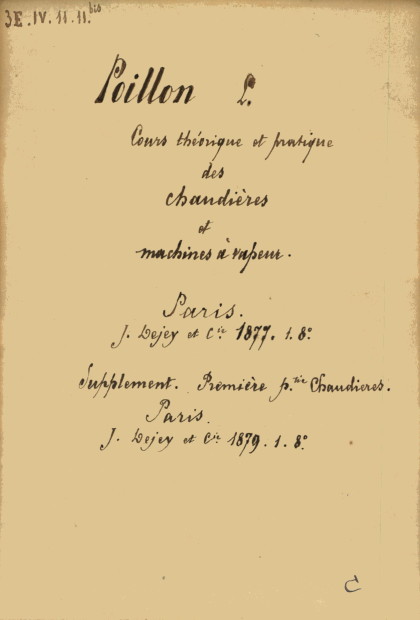 3E.IV.11.11.bis
Poillon L.
Cours théorique et pratique
des
chaudières
et
machines à vapeur.
Paris.
J. Dejey et Cie. 1877. 1. 8°
Supplement. Première p.tie Chaudieres.
Paris.
J. Dejey et Cie 1879. 1. 8°
C